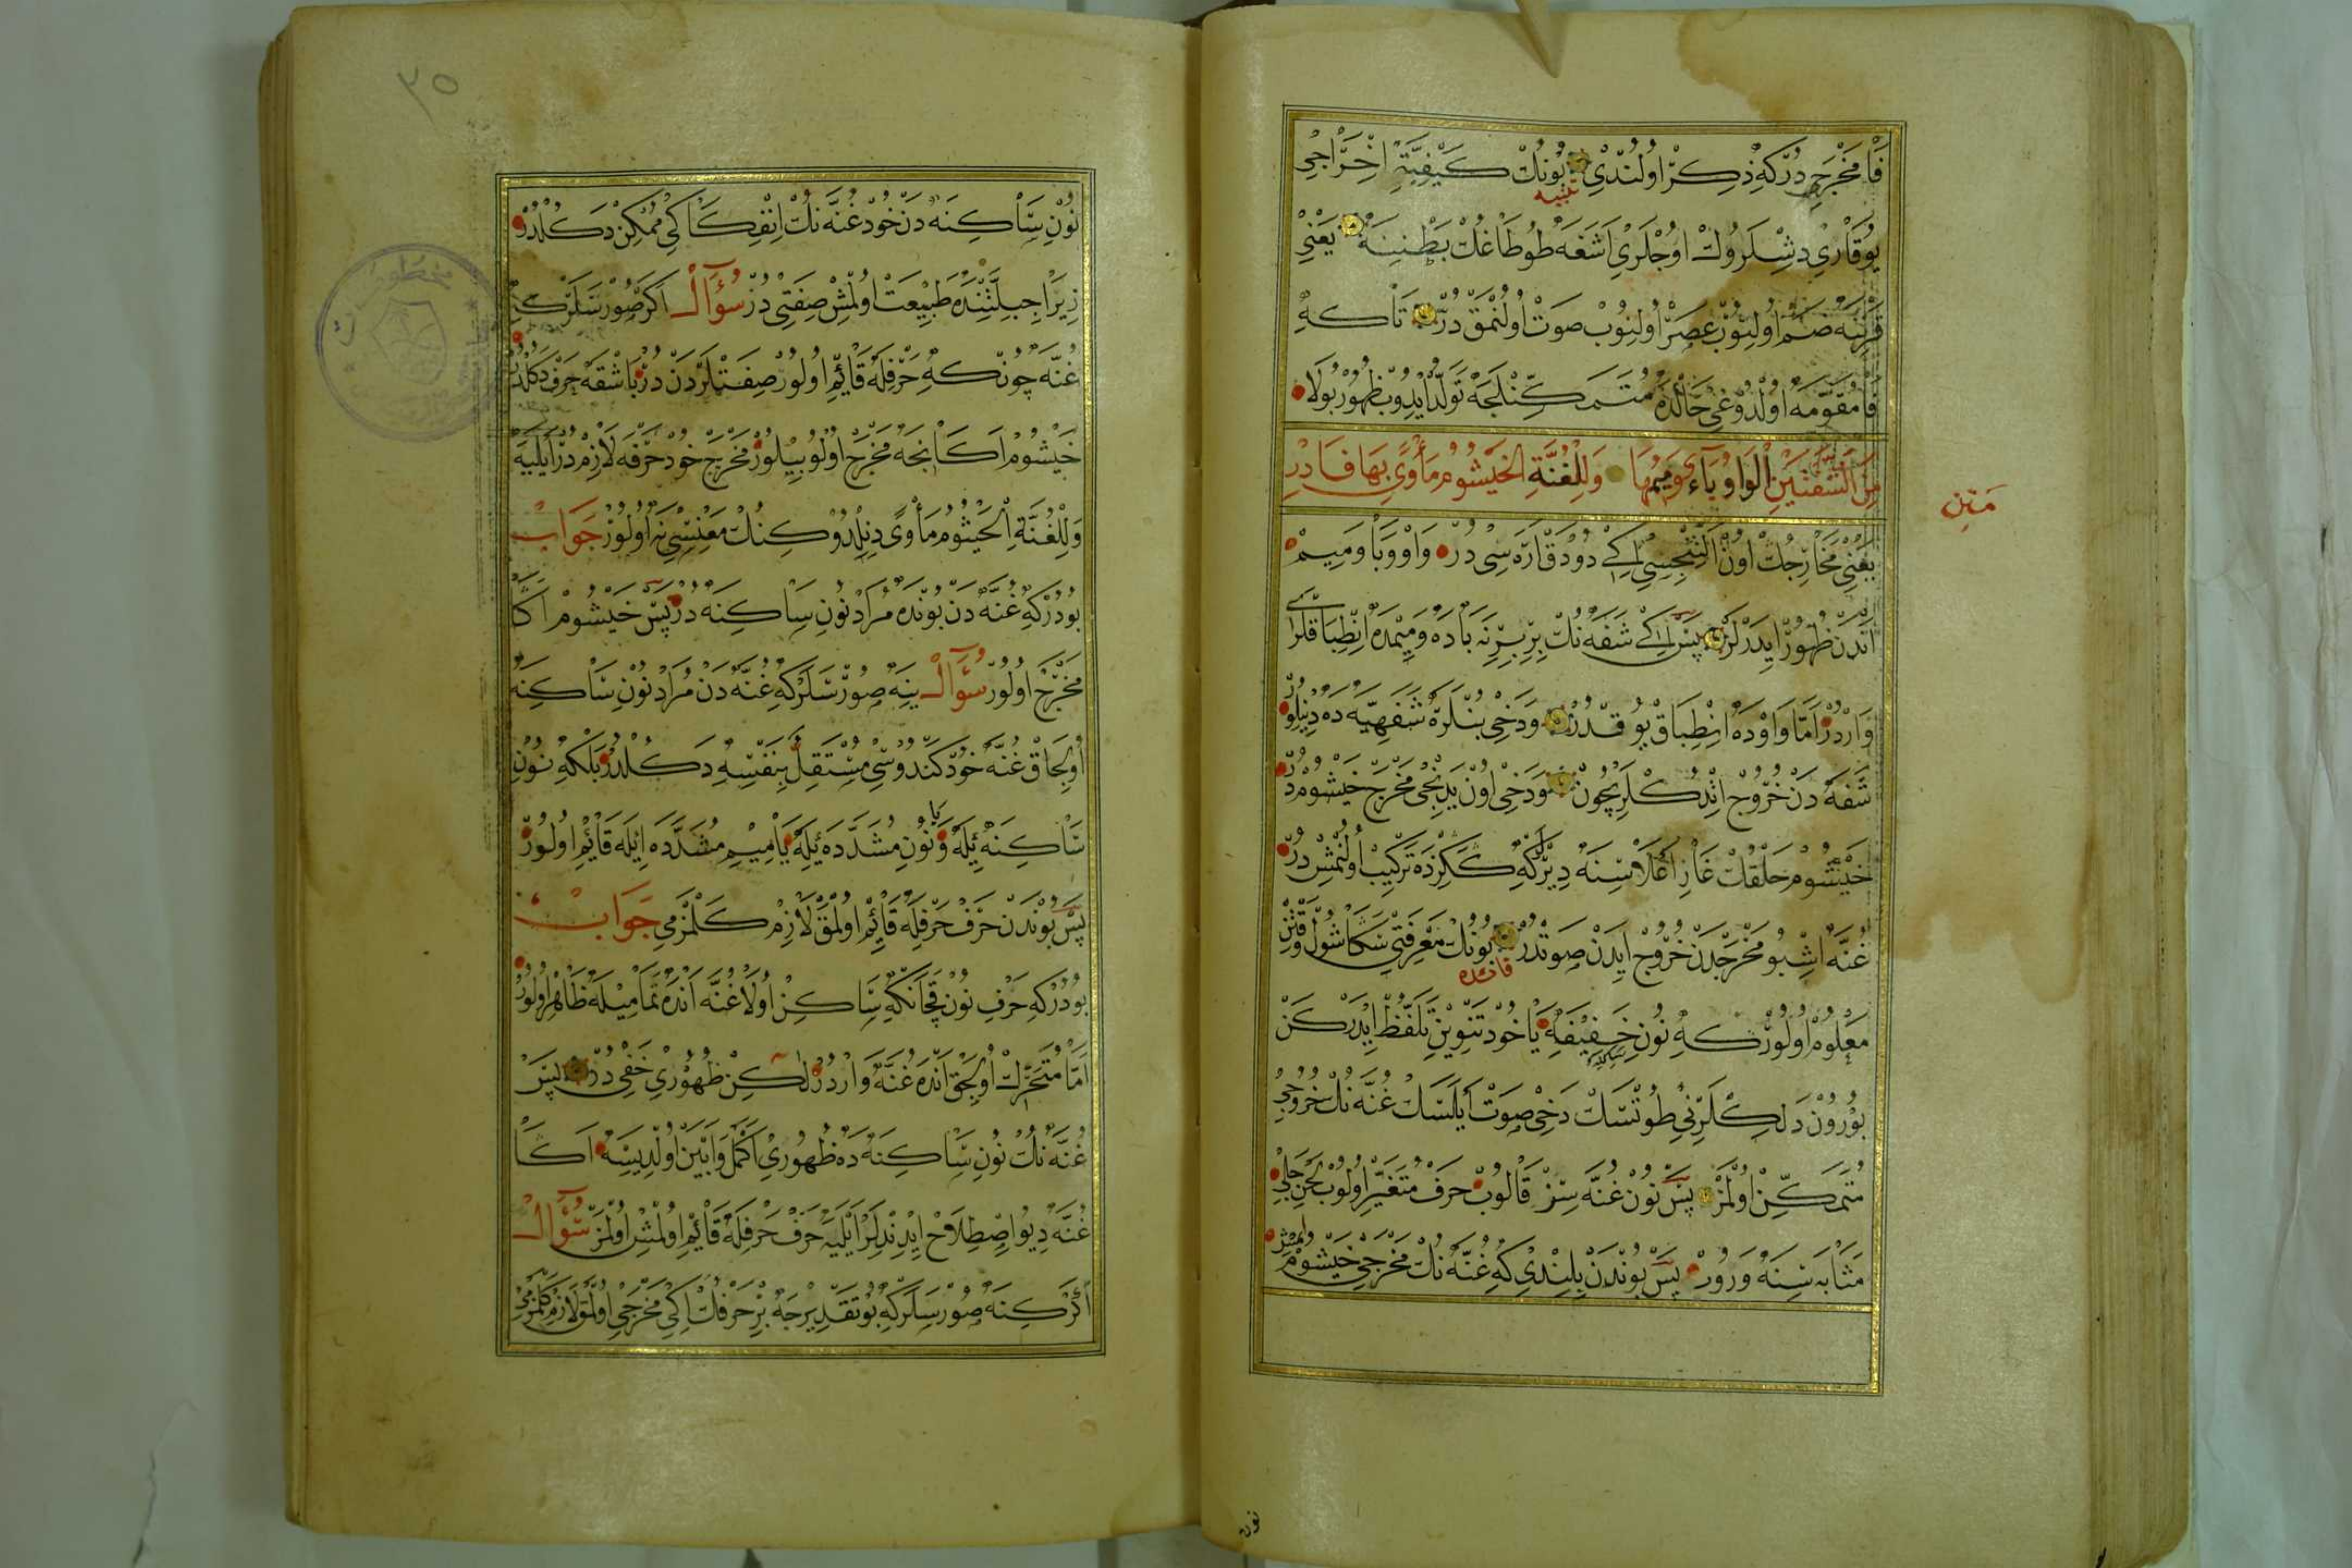 فَا مَخْرَجِ دُرْكِه ذِكِرْ اُولُنْدِي بُونُكْ كَيْفِيَّةِ اِخْرَاجِي
تنبيه
يُوقَارِي دِشْلَرُوكْ اُوجْلَرِي اَشَغَه طُوطَاغُكْ بَطْنِنَه يَعْنِي
قَرْنِنَه ضَمّ اُولِنُوبْ عَصِرْ اُولِنُوبْ صَوْتْ اُولُنْمَقْ دُرْ تَاكِه
فَا مُقَوَّمَه اُولْدُوغِي حَالْدَه مُتَمَكِّنْلَجَه تَوَلُّد اِيدُوبْ ظُهُورْ بُولَا
مِنَ الشَّفَتَيْنِ الْوَاوُ بَاءٌ وَمِيمُهَا وَلِلْغُنَّةِ الْخَيْشُومُ مَأْوًى بِهَا فَادْرِ
مَتِن
يَعْنِي مَخَارِجُكْ اُونْ اَلْتِنْجِسِي اِكِي دُودَقْ اَرَه سِي دُرْ وَاوْ وَبَا وَمِيمْ
اَنْدَنْ ظُهُورْ اِيدَرْلَرْ پَسْ اِكِي شَفَه نُكْ بِرِبِرِنَه بَادَه وَمِيمْدَه اِنْطِبَاقْلَرِي
وَارْدُرْ اَمَّا وَاوْدَه اِنْطِبَاقْ يُوقْدُرْ وَدَخِي بُنْلَرَه شَفَهِيَّه دَه دِنِيلُورْ
شَفَه دَنْ خُرُوجْ اِتْدُكْلَرِيچُونْ وَدَخِي اُونْ يَدِنْجِي مَخْرَجْ خَيْشُومْدُرْ
خَيْشُومْ حَلْقُكْ غَارِ اَعْلَاسِنَه دِيرْلَرْكِه كَكِزْدَه تَرْكِيبْ اُولُنْمِشْ دُرْ
غُنَّه اِشْبُو مَخْرَجْدَنْ خُرُوجْ اِيدَنْ صَوْتْدُرْ بُونُكْ مَعْرِفَتِي سَكَا شُولْ وَقْتِنْ
فائده
مَعْلُومْ اُولُورْكِه نُونِ خَفِيفَه يِا خُودْ تَنْوِينِ تَلَفُّظْ اِيدَرْكَنْ
ساكنه
بُورُونْ دَلِكْلَرِنِي طُوتْسَاكْ دَخِي صَوْتْ اَيْلَسَاكْ غُنَّه نُكْ خُرُوجِي
مُتَمَكِّنْ اُولْمَزْ پَسْ نُونْ غُنَّه سِزْ قَالُوبْ حَرْفْ مُتَغَيِّرْ اُولُوبْ لَحْنِ جَلِي
مَثَابَه سِنَه وَرُورْ پَسْ بُونْدَنْ بِلِنْدِي كِه غُنَّه نُكْ مَخْرَجِي خَيْشُومْ اولمش
نون
٣٥
نُونِ سَاكِنَه دَنْ خُودْ غُنَّه نُكْ اِنْفِكَاكِي مُمْكِنْ دَكُلْدُرْ
زِيرَا جِبِلَّتِنْدَه طَبِيعَتْ اُولْمِشْ صِفَتِي دُرْ سُؤَالْ اَكَرْ صُورْسَلَرْكِه
غُنَّه چُونْكِه حَرْفِلَه قَائِمْ اُولُورْ صِفَتْلَرْدَنْ دُرْ بَاشْقَه حَرْفْ دَكُلْدُرْ
خَيْشُومْ اَكَا نِجَه مَخْرَجْ اُولُوبِيلُورْ مَخْرَجْ خُودْ حَرْفَه لَازِمْ دُرْ اَيْلَيَه
وَلِلْغُنَّةِ الْخَيْشُومُ مَأْوًى دِنِلْدُوكِنُكْ مَعْنِسِي نَه اُولُورْ جَوَابْ
بُودُرْكِه غُنَّه دَنْ بُونْدَه مُرَادْ نُونِ سَاكِنَه دُرْ پَسْ خَيْشُومْ اَكَا
مَخْرَجْ اُولُورْ سُؤَالْ يِنَه صُورْسَلَرْكِه غُنَّه دَنْ مُرَادْ نُونِ سَاكِنَه
اُولِجَاقْ غُنَّه خُودْ كَنْدُوسِي مُسْتَقِلّ بِنَفْسِهِ دَكُلْدُرْ بَلْكِه نُونِ
سَاكِنَه يِلَه يا وَنُونِ مُشَدَّدَه يِلَه يَا مِيمِ مُشَدَّدَه اِيلَه قَائِمْ اُولُورْ
پَسْ بُونْدَنْ حَرْفْ حَرْفِلَه قَائِمْ اُولْمَقْ لَازِمْ كَلْمَزْمِي جَوَابْ
بُودُرْكِه حَرْفِ نُونْ قَچَانْكِه سَاكِنْ اُولَا غُنَّه اَنْدَه تَمَامِيلَه ظَاهِرْ اُولُورْ
اَمَّا مُتَحَرِّكْ اُولِجَقْ اَنْدَه غُنَّه وَارْدُرْ لٰكِنْ ظُهُورِي خَفِي دُرْ پَسْ
غُنَّه نُكْ نُونِ سَاكِنَه دَه ظُهُورِي اَكْمَلْ وَاَبْيَنْ اُولْدِيسَه اَكَا
غُنَّه دِيُو اِصْطِلَاحْ اِيدِنْدِلَرْ اَيْلَيَه حَرْفْ حَرْفِلَه قَائِمْ اُولْمِشْ اُولْمَزْ سُؤَالْ
اَكَرْ كِنَه صُورْسَلَرْكِه بُو تَقْدِيرْجَه بِرْ حَرْفُكْ اِكِي مَخْرَجِي اُولْمَقْ لَازِمْ كَلْمَزْمِي